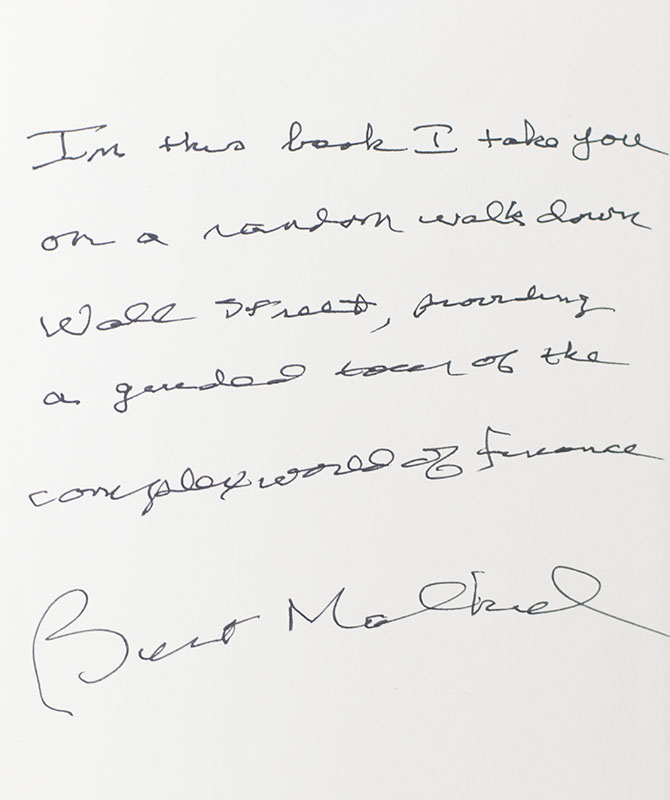 In this book I take you
on a random walk down
Wall Street, providing
a guided tour of the
complex world of finance
Burt Malkiel